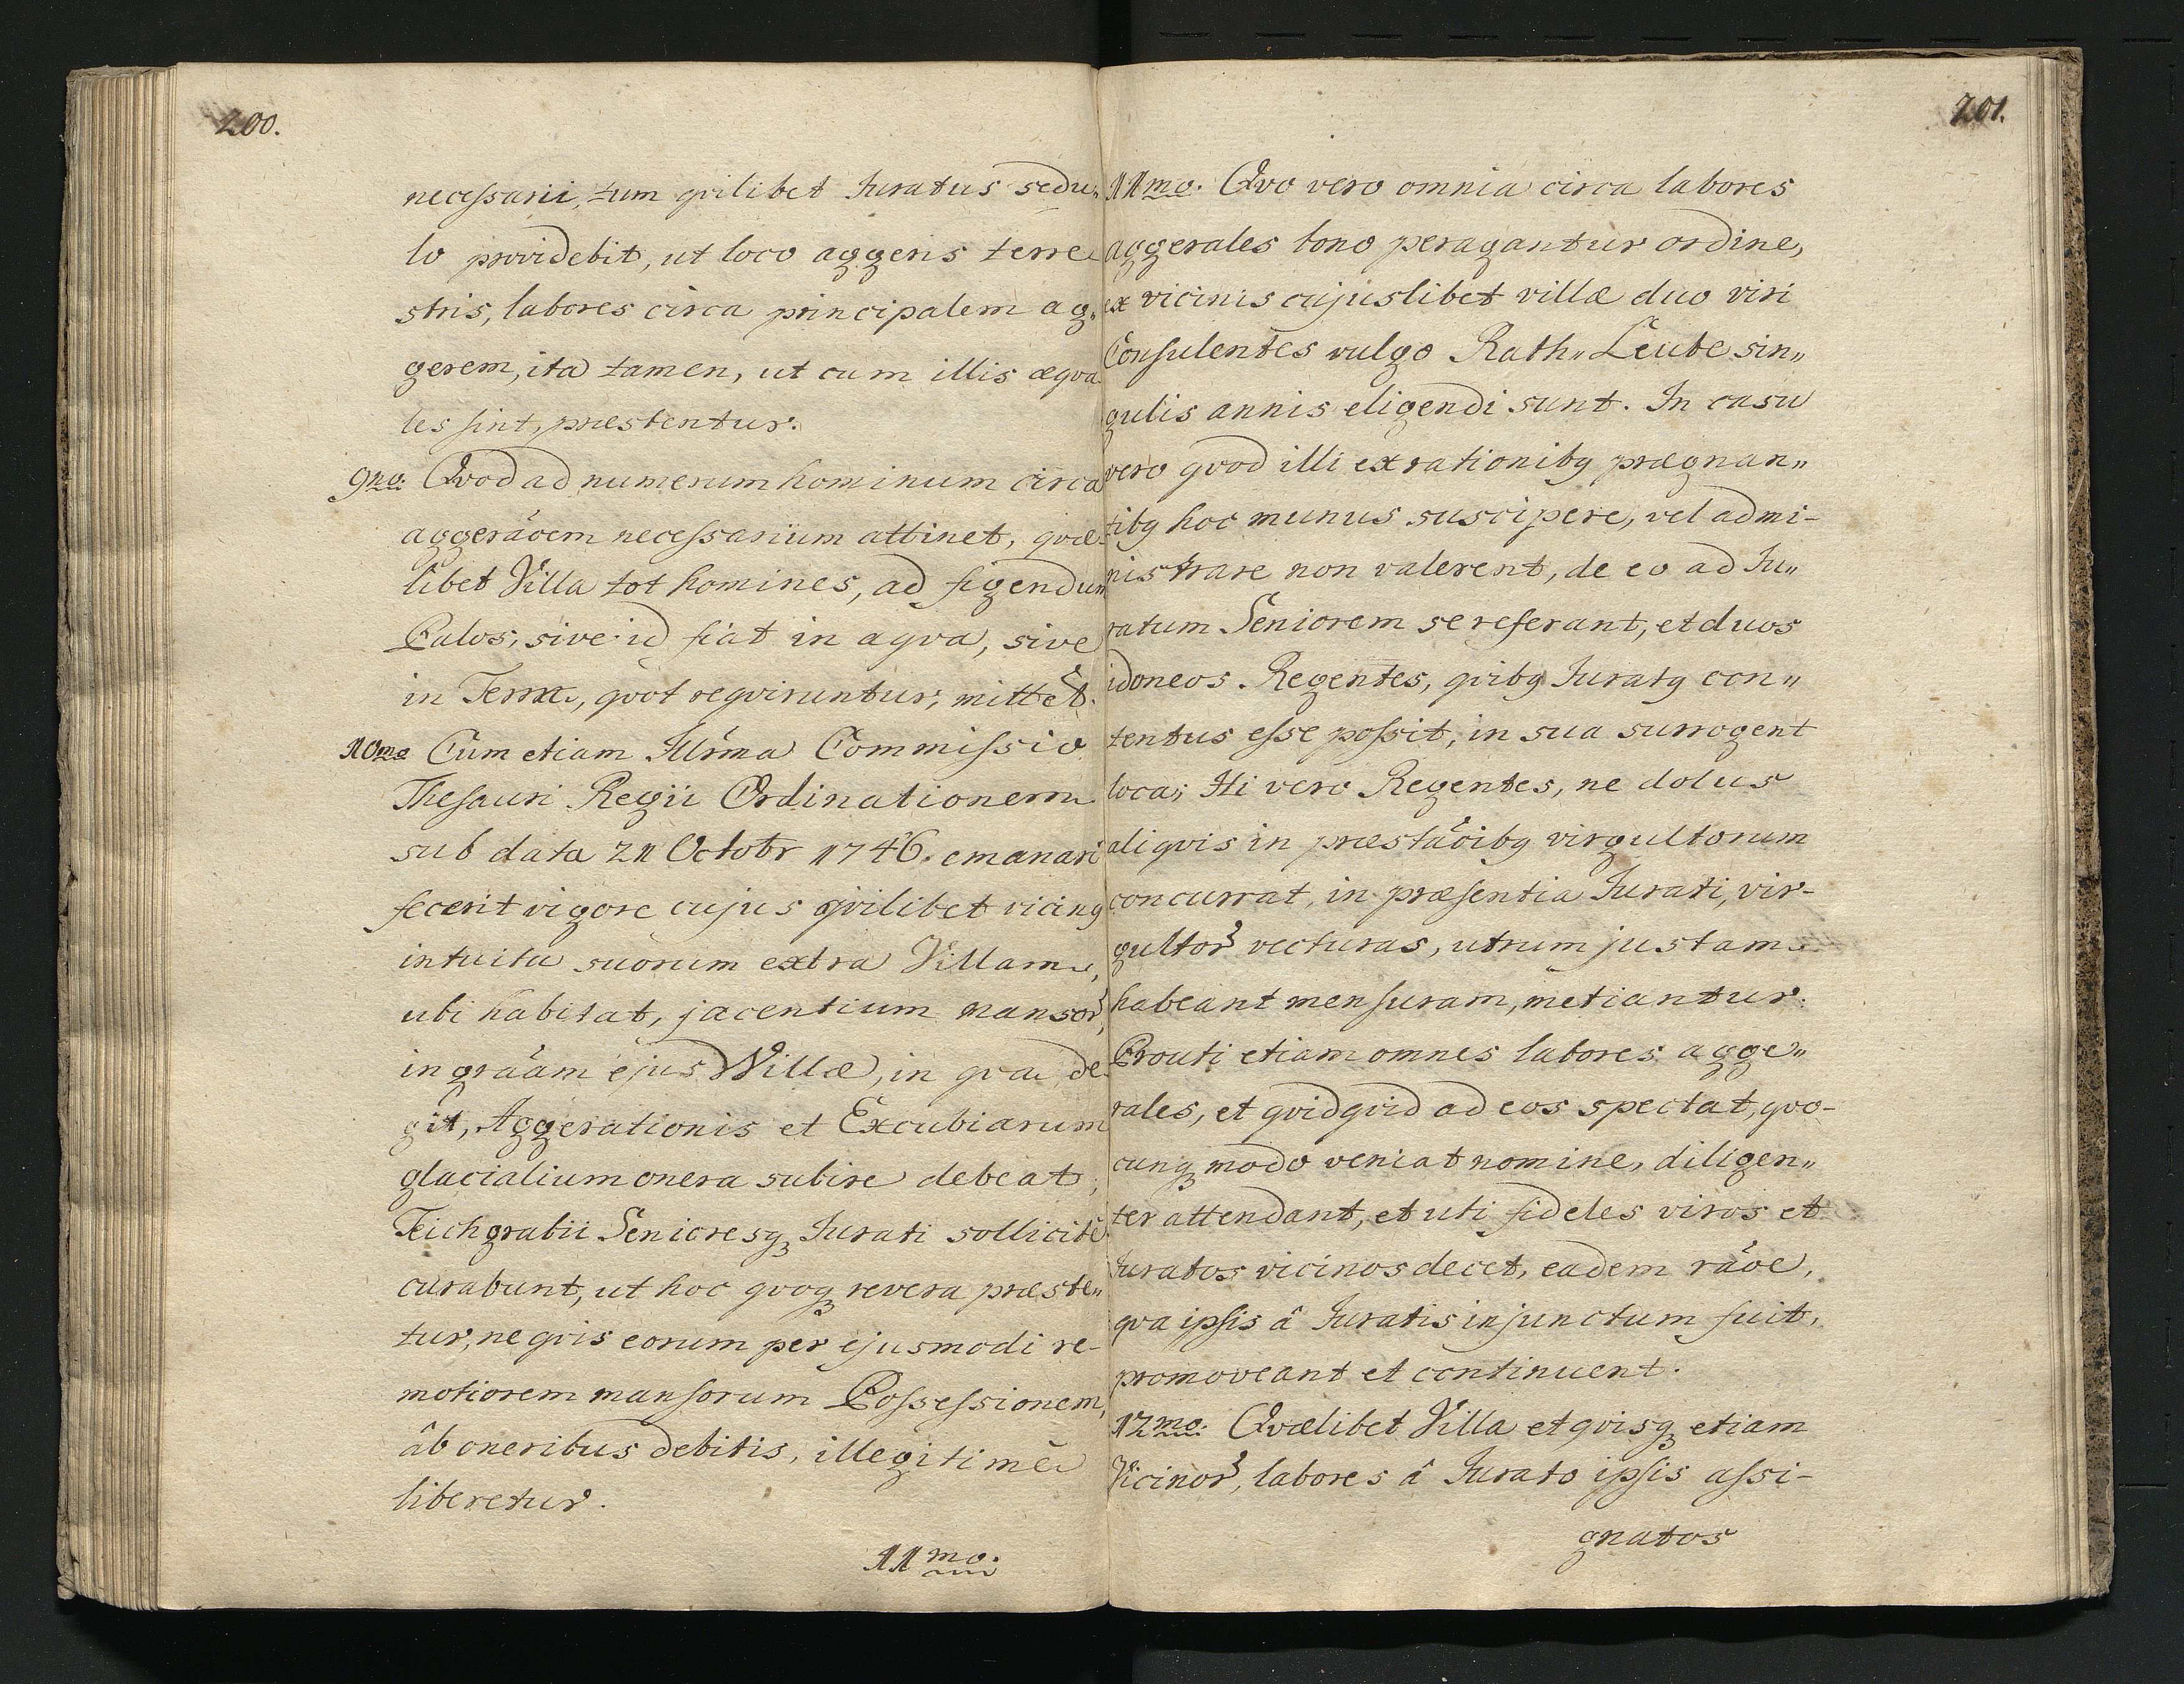 200.
necessarii, tum qvilibet Juratus sedu„
lo providebit, ut loco aggeris terre
stris, labores circa principalem ag„
gerem, ita tamen, ut cum illis æqva
les sint, præstentur.
9no. Qvod ad numerum hominum circa
aggeraõem necessarium attinet, qvæ
libet Villa tot homines, ad figendum
Palos, sive id fiat in aqva, sive
in Terra, qvot reqviruntur, mittet.
10mo Cum etiam Illr̃ma Commissio
Thesauri Regii Ordinationem
sub data 21 Octobr 1746. emanari
fecerit vigore cujus qvilibet vicinꝰ
intuitu suorum extra Villam,
ubi habitat, jacentium mansoꝝ,
in graãm ejus Villæ, in qva de
git, Aggerationis et Excubiarum
glacialium onera subire debeat;
Teichgrabii Senioresqꝫ Jurati sollicitè
curabunt, ut hoc qvoqꝫ revera præste„
tur, ne qvis eorum per ejusmodi re-
motiorem mansorum Possessionem,
âb oneribus debitis, illegitimè
liberetur.
11mo.
201.
11mo. Qvo vero omnia circa labores
aggerales bono peragantur ordine,
ex vicinis cujuslibet villæ duo viri
Consulentes vulgo Rath„ Leute sin„
gulis annis eligendi sunt. In casu
vero qvod illi ex rationibꝰ prægnan„
tibꝰ hoc munus suscipere, vel admi-
nistrare non valerent, de eo ad Ju„
ratum Seniorem se referant, et duos
idoneos Regentes, qvibꝰ Juratꝰ con„
tentus esse possit, in sua surrogent
loca; Hi vero Regentes, ne dolus
aliqvis in præstaõibꝰ virgultorum
concurrat, in præsentia Jurati, vir-
gultoꝝ vecturas, utrum justam
habeant mensuram, metiantur.
Prouti etiam omnes labores agge„
rales, et qvidqvid ad eos spectat, qvo-
cunqꝫ modo veniat nomine, diligen„
ter attendant, et uti fideles viros et
Juratos vicinos decet, eadem raõe,
qva ipsis â Juratis injunctum fuit,
promoveant et continuent.
12mo. Qvælibet Villa et qvisqꝫ etiam
Vicinoꝝ, labores â Jurato ipsis assi-
gnatos